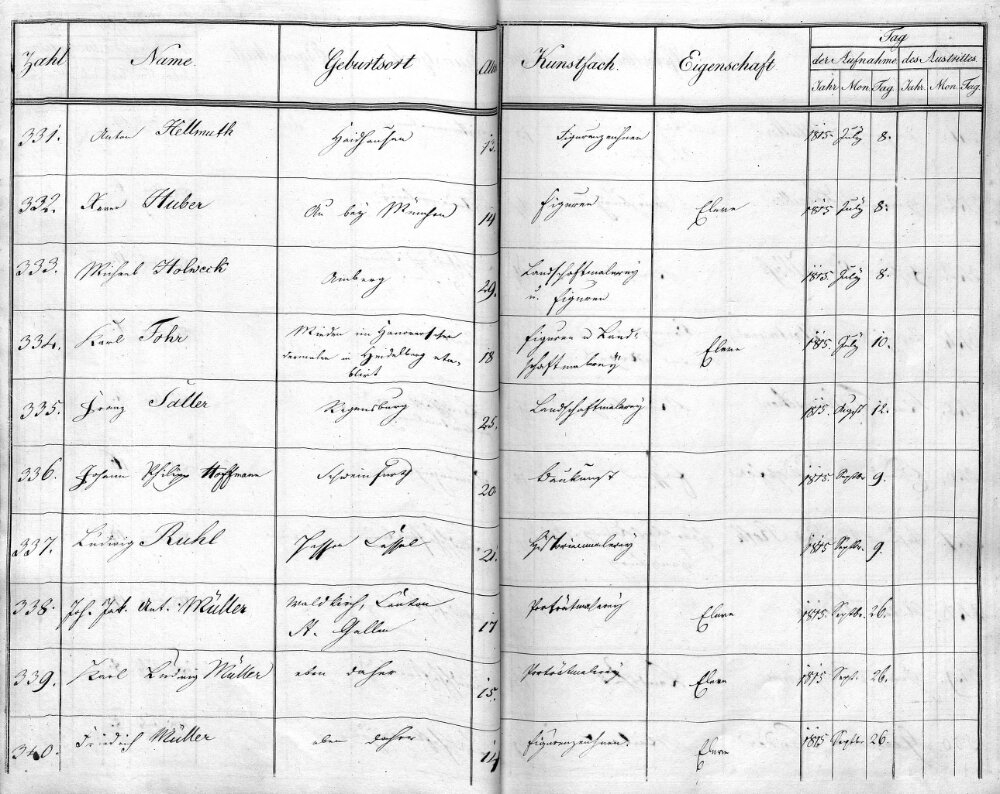 Zahl Name. Geburtsort Alter Kunstfach. Eigenschaft Tag
der Aufnahme des Austrittes.
Jahr Mon. Tag. Jahr. Mon. Tag.
331. Anton Hellmuth Haidhausen 13. Figurenzeichnen 1815 July 8.
332. Xaver Huber Au bey München 14 Figuren Eleve 1815 July 8.
333. Michael Holweck Amberg 29. Landschaftmalerey 1815. July 8.
u. Figuren
334. Karl Fohr 18 Figuren u Land- Eleve 1815 July 10.
dermalen in Heidelberg etab-
schaftmalerey
lirt
335. Franz Sattler Regensburg 25. Landschaftmalerey 1815. August 12.
336. Johann Philipp Hoffmann Schweinfurth 20 Baukunst 1815. Septbr. 9.
337. Ludwig Ruhl Hessen Cassel 21. Historienmalerey 1815 Septbr. 9.
338. Joh. Jak. Ant. Müller Waldkirch, Canton 17 Porträtmalerey Eleve 1815. Septbr. 26.
St. Gallen
339. Karl Ludwig Müller eben daher 15. Porträtmalerey Eleve 1815 Sept. 26.
340. Friedrich Müller eben daher 14 Figurenzeichnen. Eleve 1815 Septbr 26.